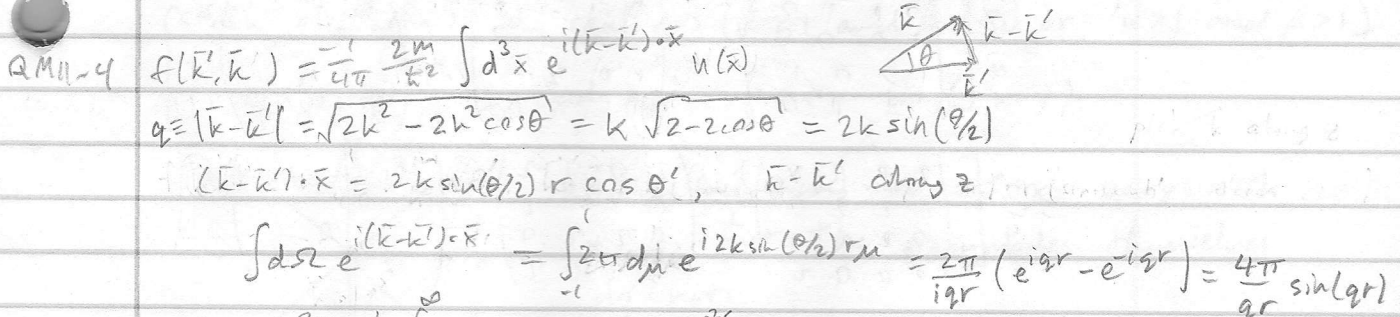 QM11-4 f(k̄',k̄) = -1/4π 2m/ħ² ∫d³x̄ e^{i(k̄-k̄')·x̄} u(x̄)
k̄ k̄-k̄' θ k̄'
q≡|k̄-k̄'| = √(2k² - 2k²cosθ) = k √(2-2cosθ) = 2k sin(θ/2)
(k̄-k̄')·x̄ = 2k sin(θ/2) r cos θ', k̄-k̄' along z
∫dΩ e^{i(k̄-k̄')·x̄} = ∫_{-1}^{1} 2π dμ e^{i2k sin(θ/2) rμ} = 2π/iqr (e^{iqr} - e^{-iqr}) = 4π/qr sin(qr)